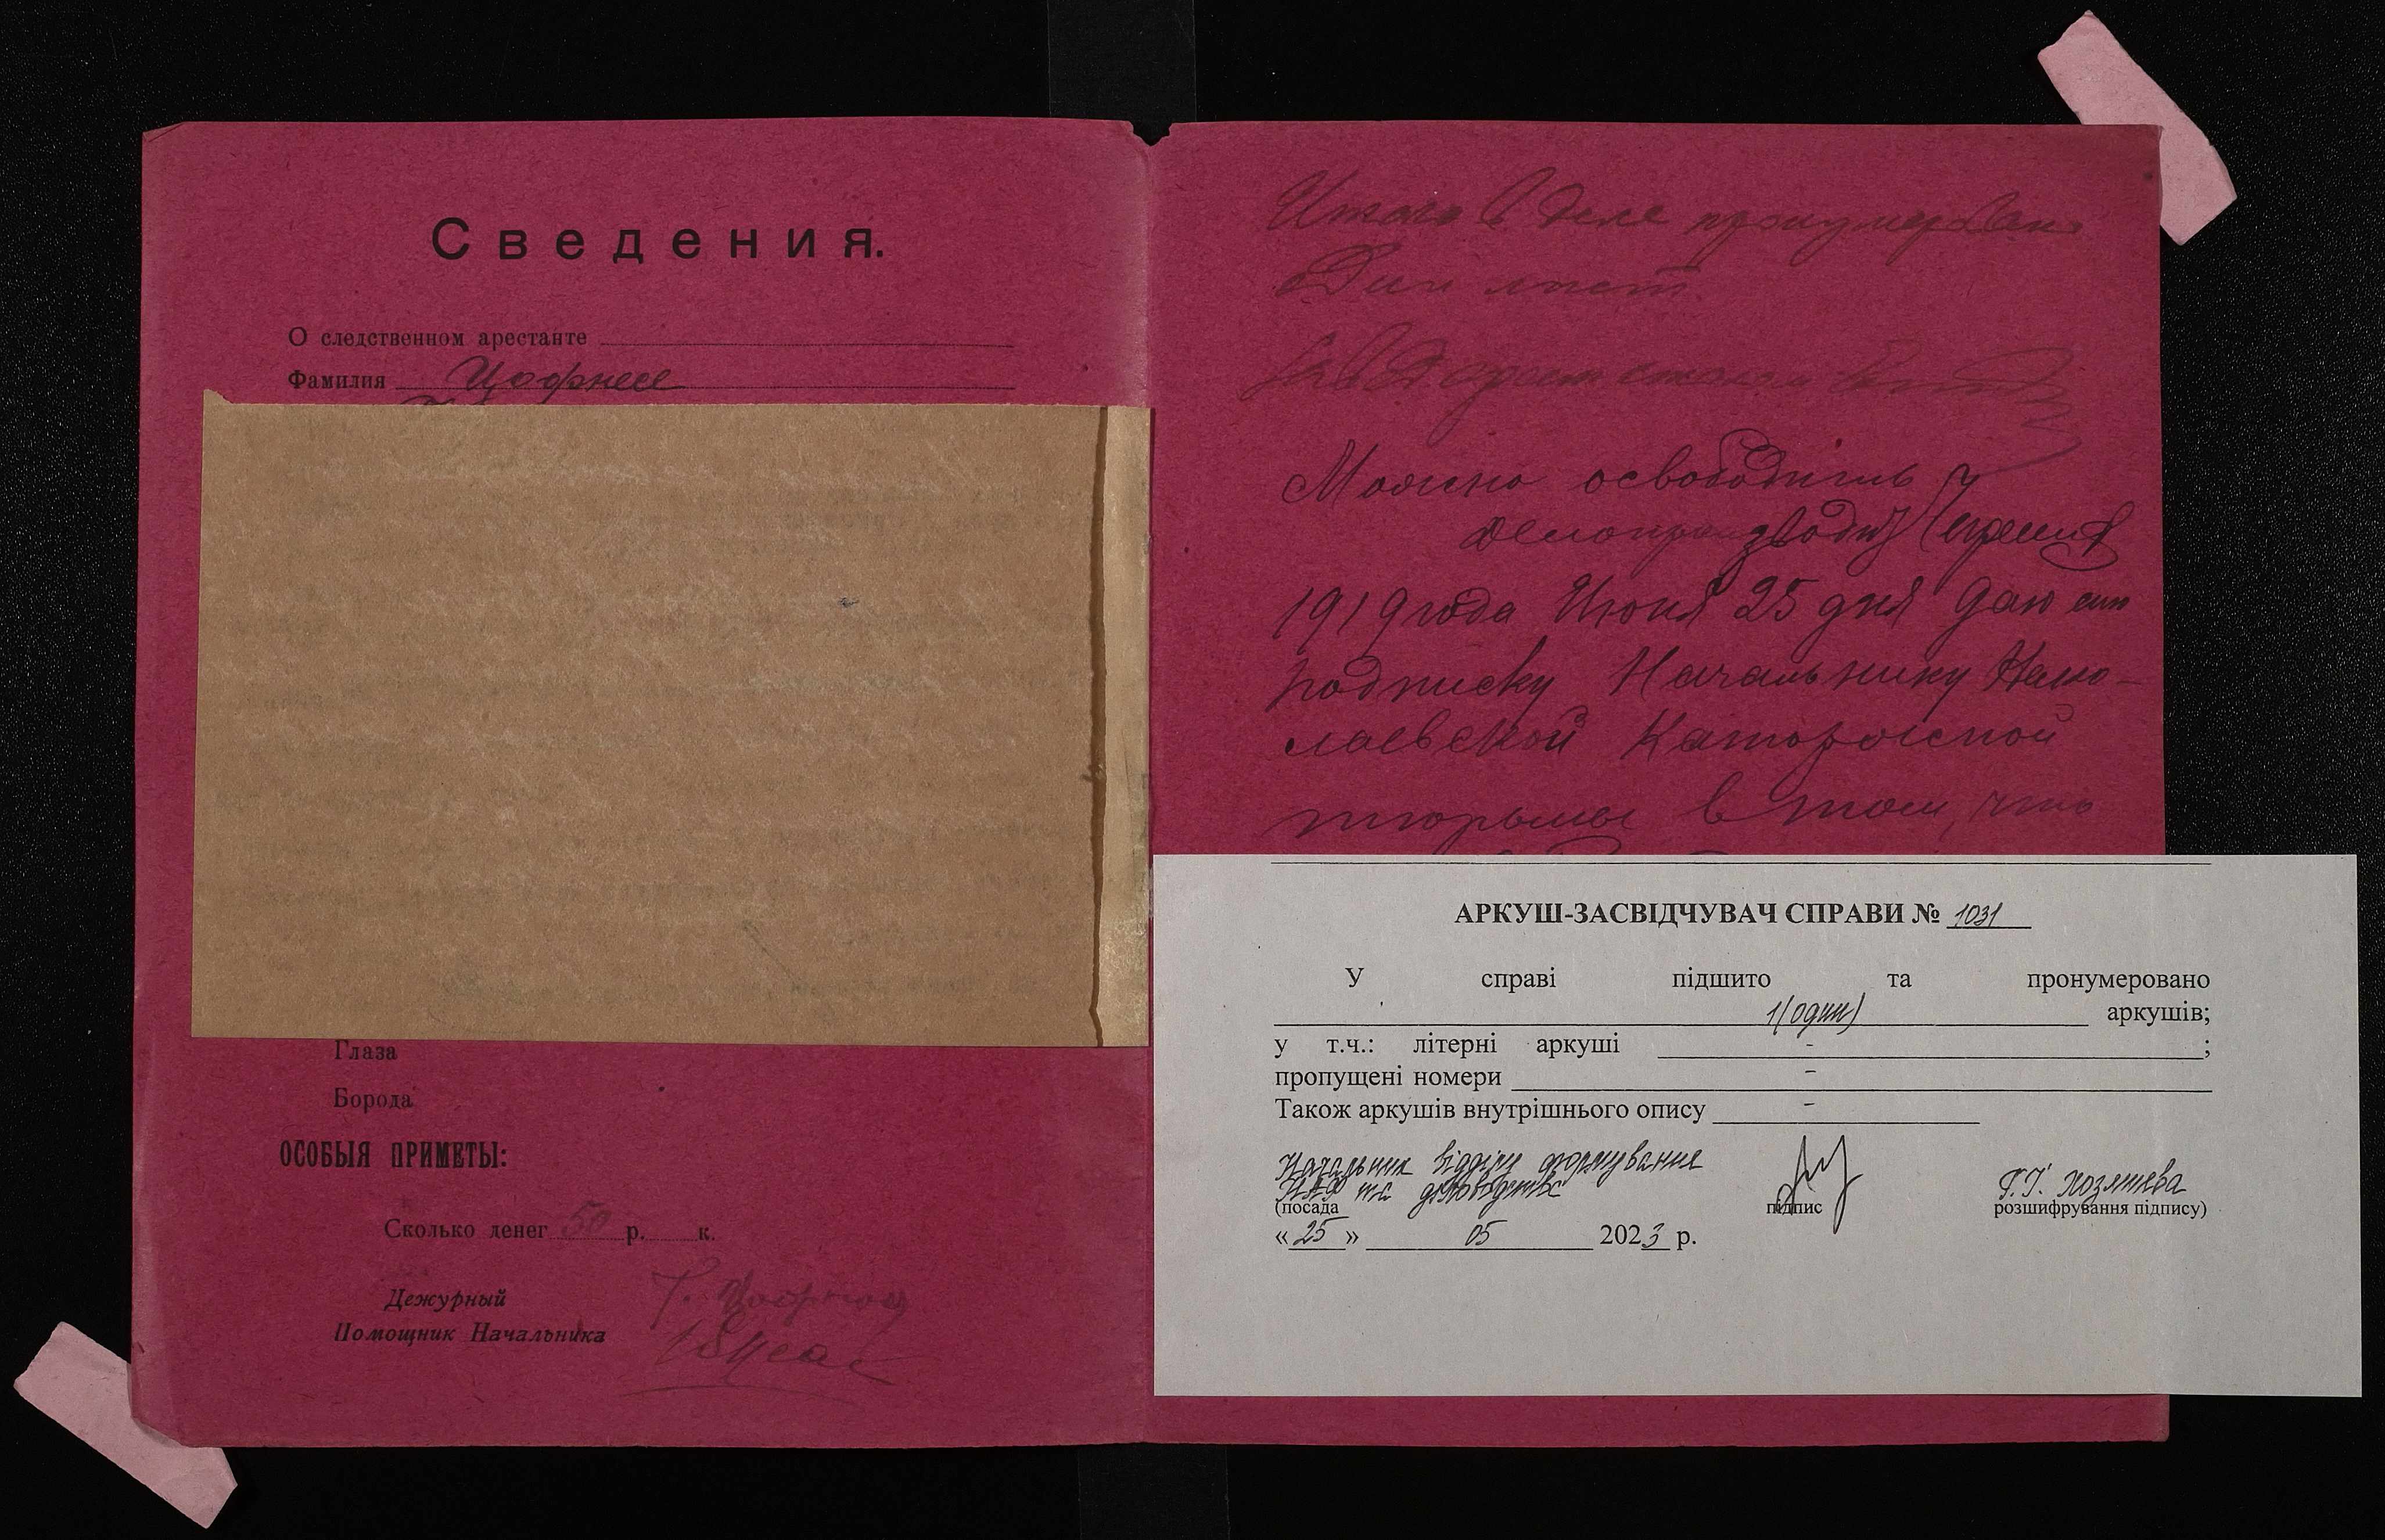 Сведения.
О следственном арестанте
Фамилия Цофнесе
Глаза
Борода
ОСОБЫЯ ПРИМЕТЫ:
Сколько денег 50 р. к.
Дежурный
Помощник Начальника
Итого в деле пронумерован
Один лист.
Можно освободить
делопроизвод
1919 года Июня 25 дня даю сию
подписку Начальнику Нико-
лаевской Каторжной
тюрьмы в том, что
АРКУШ-ЗАСВІДЧУВАЧ СПРАВИ № 1031
У справі підшито та пронумеровано
1(один) аркушів;
у т.ч.: літерні аркуші - ;
пропущені номери -
Також аркушів внутрішнього опису -
Начальник відділу формування
НАФ та діловодства
(посада підпис розшифрування підпису)
«25» 05 2023 р.